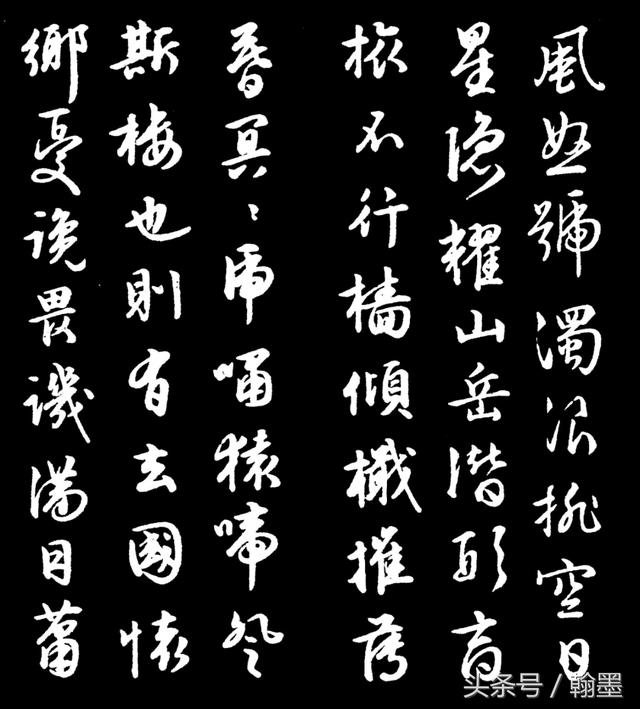 風怒號濁浪排空日
星隱耀山岳潛形商
旅不行檣傾檝摧薄
暮冥〻虎嘯猿啼登
斯樓也則有去國懷
鄉憂讒畏譏滿目蕭
头条号 / 翰墨